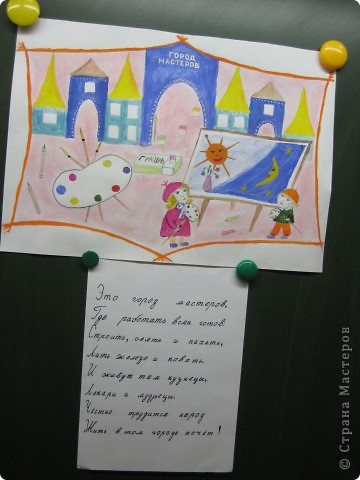 ГОРОД
МАСТЕРОВ
ГУАШЬ
Это город мастеров,
Где работать всяк готов:
Строить, сеять и пахать,
Лить железо и ковать.
И живут там кузнецы,
Лекари и мудрецы.
Честно трудится народ
Жить в том городе почёт!
© Страна Мастеров